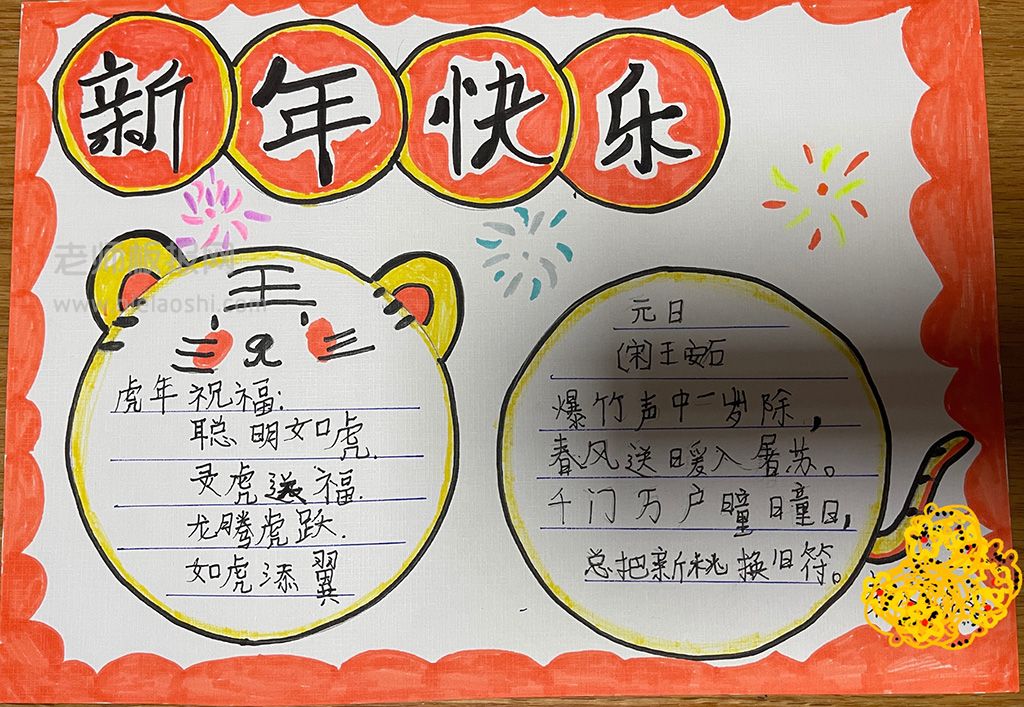 新年快乐
老师板报网
www.melaoshi.com
王
虎年祝福:
聪明如虎.
灵虎送福.
龙腾虎跃.
如虎添翼
元日
(宋)王安石
爆竹声中一岁除,
春风送暖入屠苏。
千门万户曈曈日,
总把新桃换旧符。